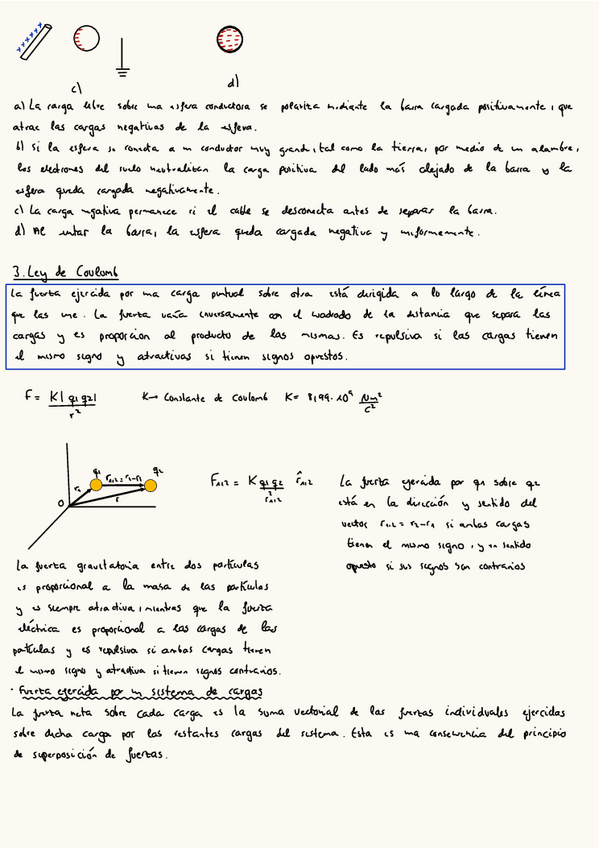 c)
d)
a) La carga libre sobre una esfera conductora se polariza mediante la barra cargada positivamente, que
atrae las cargas negativas de la esfera.
b) Si la esfera se conecta a un conductor muy grande, tal como la tierra, por medio de un alambre,
los electrones del suelo neutralizan la carga positiva del lado más alejado de la barra y la
esfera queda cargada negativamente.
c) La carga negativa permanece si el cable se desconecta antes de separar la barra.
d) Al quitar la barra, la esfera queda cargada negativa y uniformemente.
3. Ley de Coulomb
La fuerza ejercida por una carga puntual sobre otra está dirigida a lo largo de la línea
que las une. La fuerza varía inversamente con el cuadrado de la distancia que separa las
cargas y es proporcion al producto de las mismas. Es repulsiva si las cargas tienen
el mismo signo y atractivas si tienen signos opuestos.
F = K|q1q2| / r² K→ Constante de Coulomb K= 8,99·10⁹ Nm²/C²
q1 q2
r12=r2-r1
r1
r
O
F12 = K q1q2 / r²12 r̂12
La fuerza ejercida por q1 sobre q2
está en la dirección y sentido del
vector r12=r2-r1 si ambas cargas
tienen el mismo signo, y en sentido
opuesto si sus signos son contrarios
La fuerza gravitatoria entre dos partículas
es proporcional a la masa de las partículas
y es siempre atractiva, mientras que la fuerza
eléctrica es proporcional a las cargas de las
partículas y es repulsiva si ambas cargas tienen
el mismo signo y atractiva si tienen signos contrarios.
· Fuerza ejercida por un sistema de cargas
La fuerza neta sobre cada carga es la suma vectorial de las fuerzas individuales ejercidas
sobre dicha carga por las restantes cargas del sistema. Esta es una consecuencia del principio
de superposición de fuerzas.